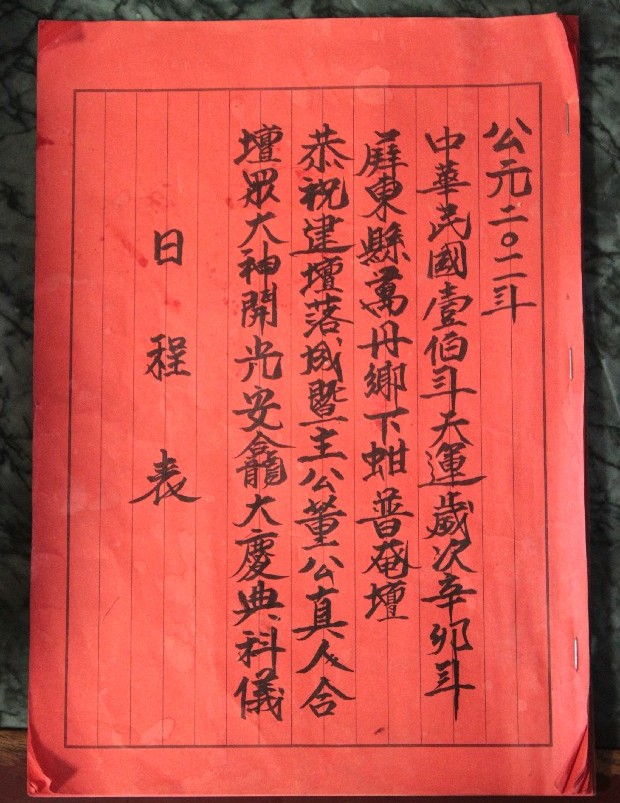 公元二〇一一年
中華民國壹佰年天運歲次辛卯年
屏東縣萬丹鄉下蚶普庵壇
恭祝建壇落成暨主公董公真人合
壇眾大神開光安龕大慶典科儀
日程表